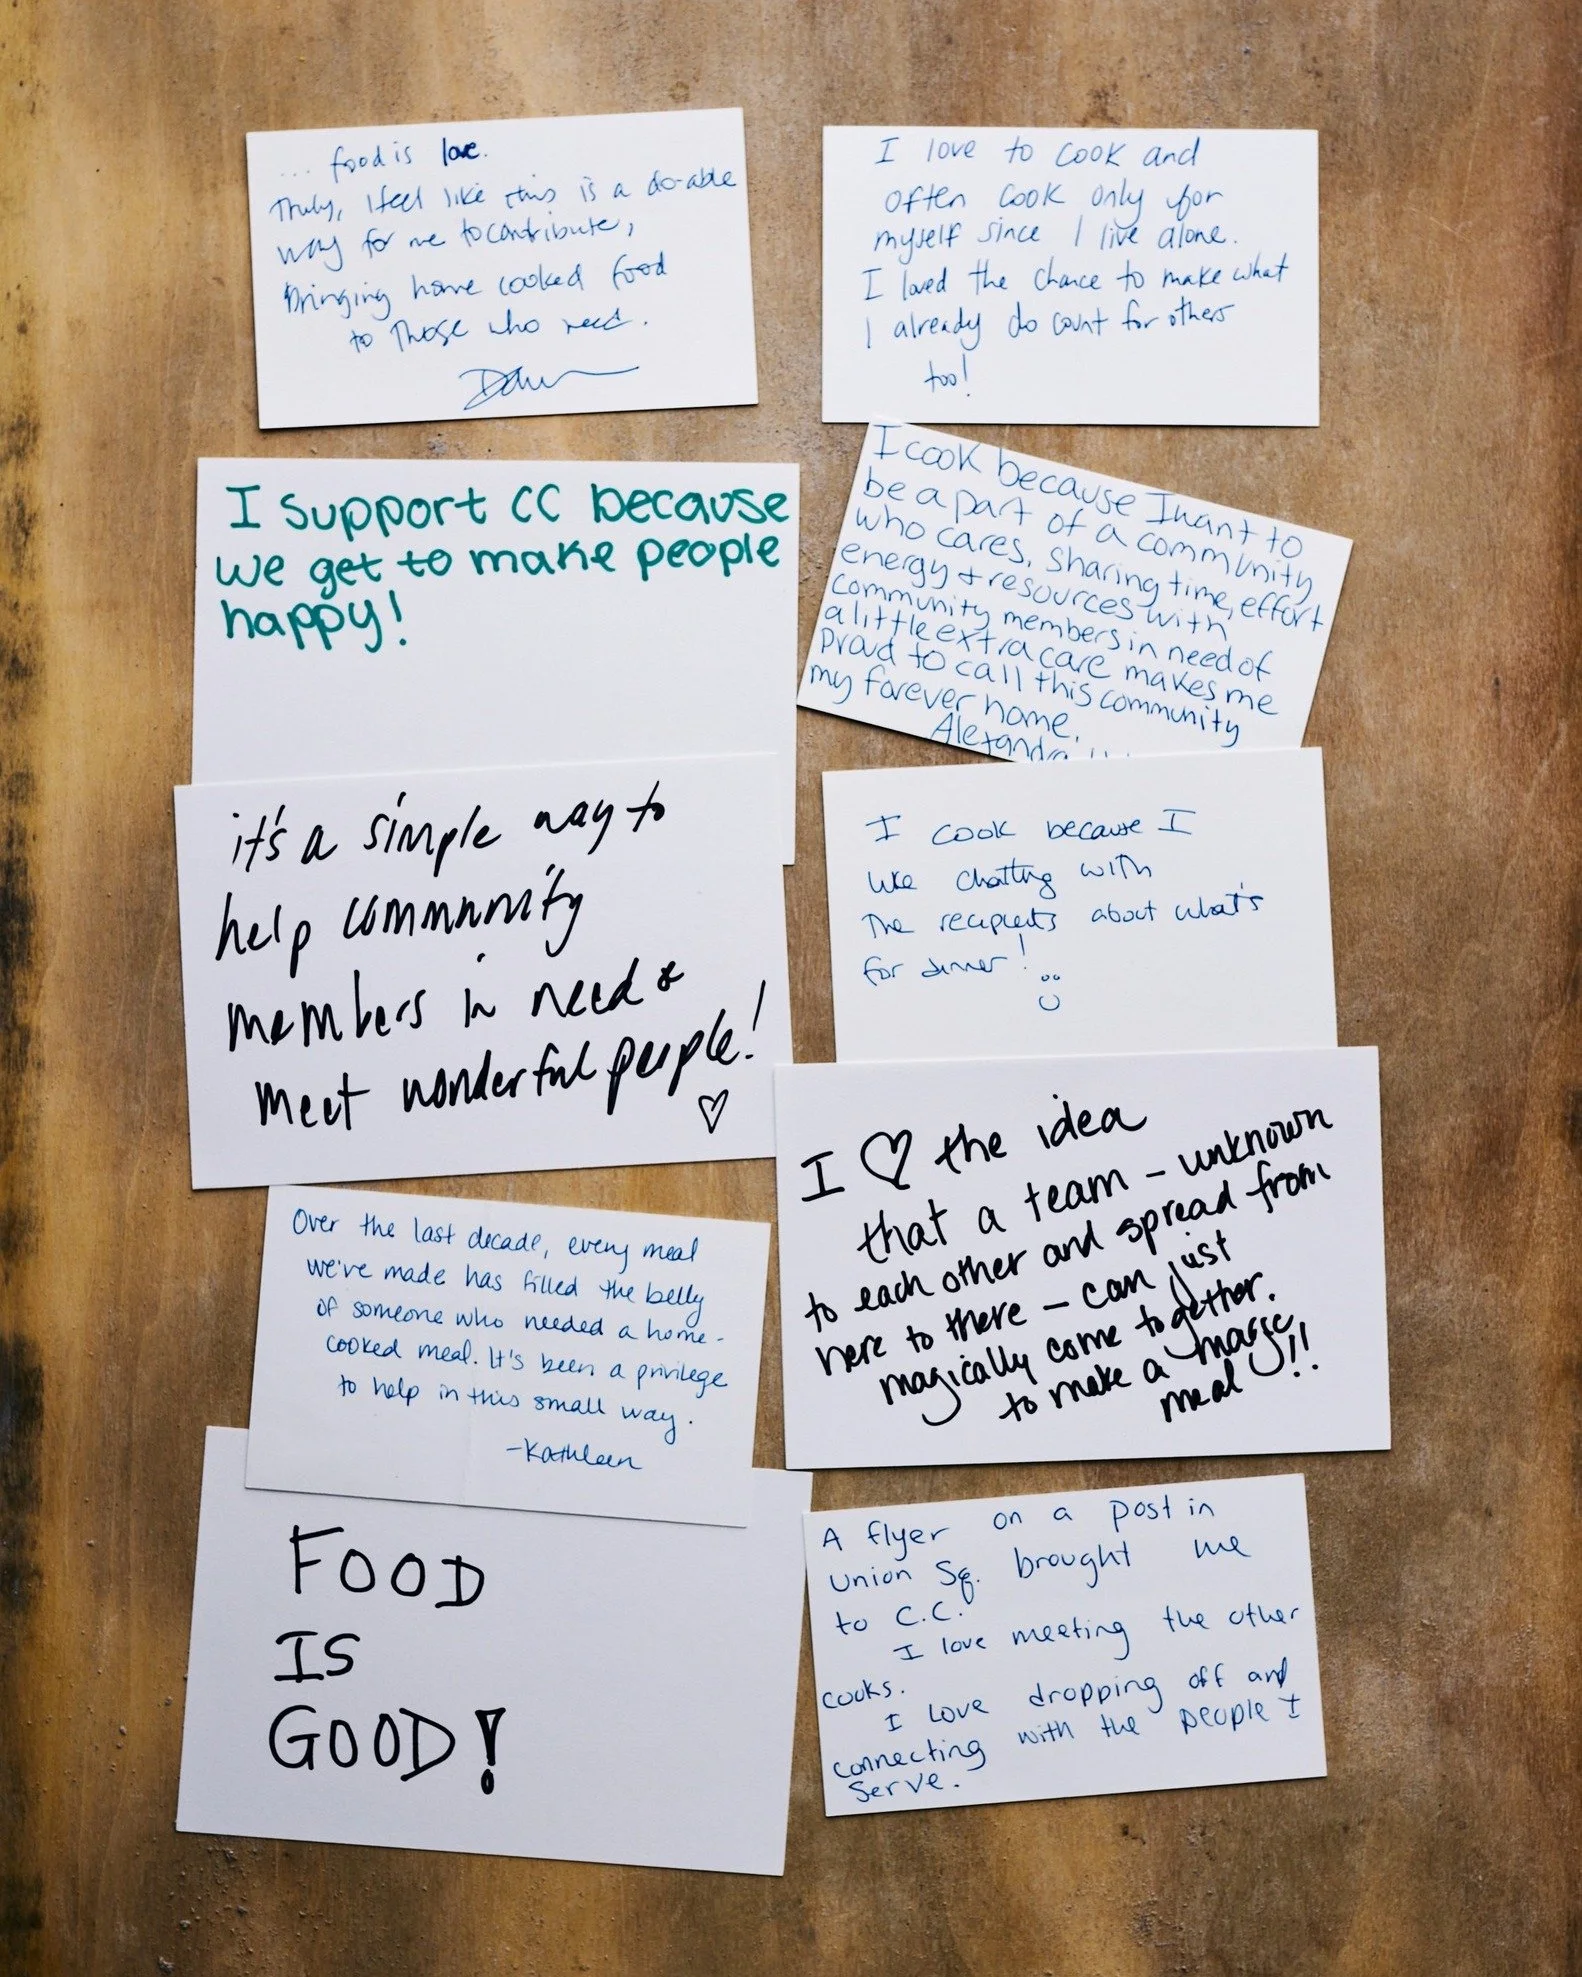 ... food is love.
Truly, I feel like this is a do-able
way for me to contribute,
Bringing home cooked food
to those who need.
I love to cook and
often cook only for
myself since I live alone.
I loved the chance to make what
I already do count for others
too!
I support CC because
we get to make people
happy!
I cook because I want to
be a part of a community
who cares. Sharing time, effort
energy + resources with
community members in need of
a little extra care makes me
proud to call this community
my forever home.
Alexandra
it's a simple way to
help community
members in need &
meet wonderful people!
I cook because I
like chatting with
the recipients about what's
for dinner!
I ♡ the idea
that a team - unknown
to each other and spread from
here to there - can just
magically come together.
to make a
meal!!
Over the last decade, every meal
we've made has filled the belly
of someone who needed a home-
cooked meal. It's been a privilege
to help in this small way.
-Kathleen
FOOD
IS
GOOD!
A flyer on a post in
Union Sq. brought me
to C.C.
I love meeting the other
cooks.
I love dropping off and
connecting with the people I
serve.